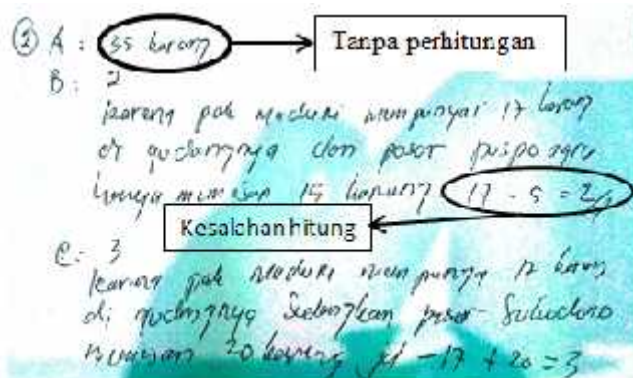 ② A : 35 karang Tanpa perhitungan
B : 2
karena pak Maduki mempunyai 17 karang
di gudangnya dan pasar puspo agro
hanya memesan 15 karang 17 - 5 = 2
Kesalahan hitung
C : 3
karena pak Maduki mempunya 17 karang
di gudangnya Sedangkan pasar Sukodono
memesan 20 karang jd - 17 + 20 = 3